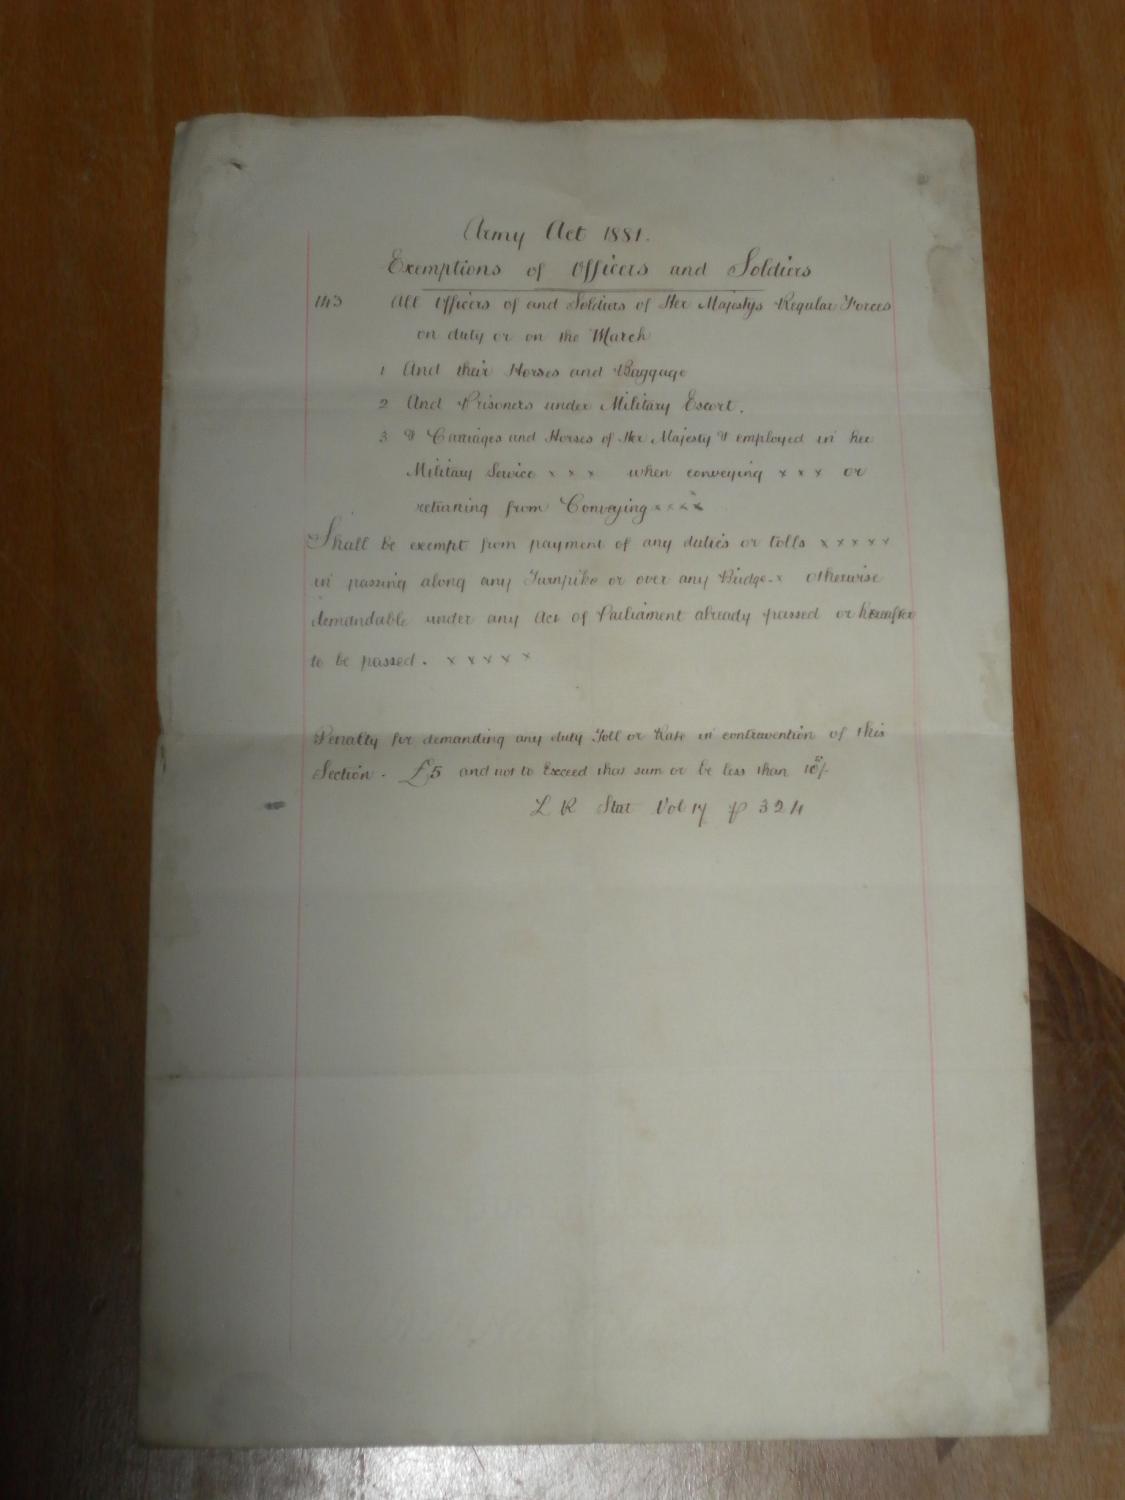 Army Act 1881.
Exemptions of Officers and Soldiers
143 All Officers of and Soldiers of Her Majestys Regular Forces
on duty or on the March
1 And their Horses and Baggage
2 And Prisoners under Military Escort.
3 & Carriages and Horses of Her Majesty & employed in her
Military Service x x x when conveying x x x or
returning from Conveying x x x x
Shall be exempt from payment of any duties or tolls x x x x x
in passing along any Turnpike or over any Bridge - x otherwise
demandable under any Act of Parliament already passed or hereafter
to be passed. x x x x x
Penalty for demanding any duty Toll or Rate in contravention of this
Section. £5 and not to Exceed that sum or be less than 10/-
L R Stat Vol 17 p 324